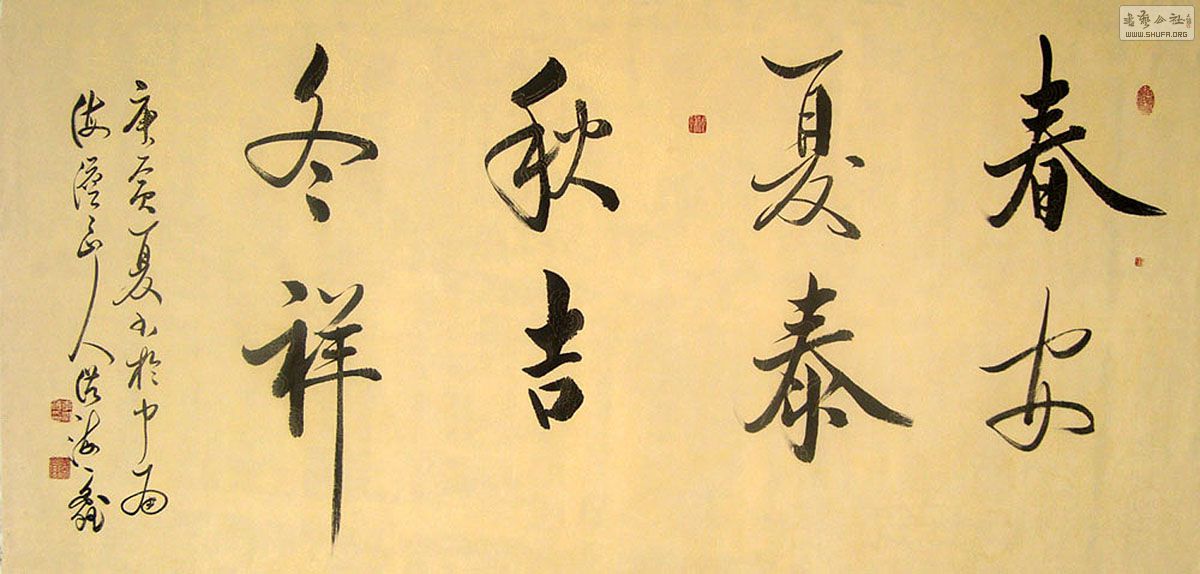 春安
夏泰
秋吉
冬祥
庚寅夏书於中南
海澹定人
书艺公社
WWW.SHUFA.ORG